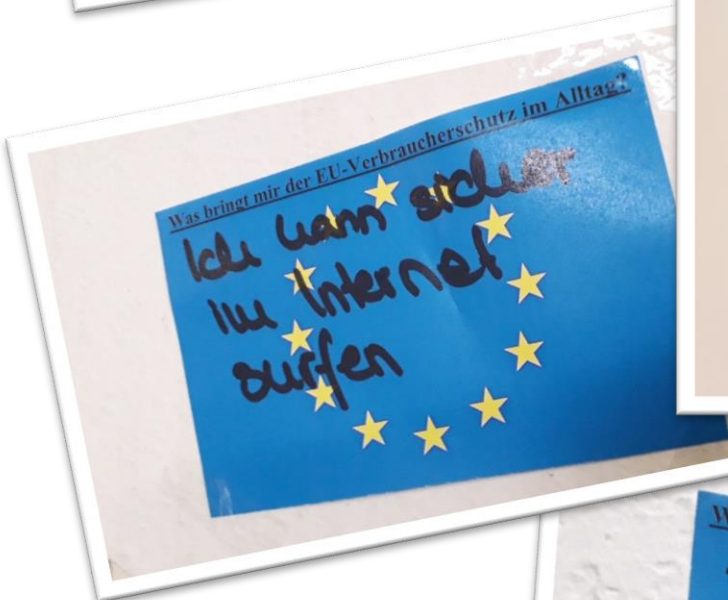 Was bringt mir der EU-Verbraucherschutz im Alltag?
Ich kann sicher
im Internet
surfen